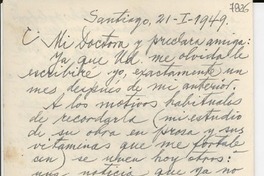 1886
Santiago, 21-I-1949.
Mi Doctora y preclara amiga:
Ya que Ud. me olvida, le
escribiré yo, exactamente un
mes después de mi anterior.
A los motivos habituales
de recordarla (mi estudio
de su obra en prosa y sus
vitaminas que me fortale-
cen) se unen hoy otros:
una noticia que ya no